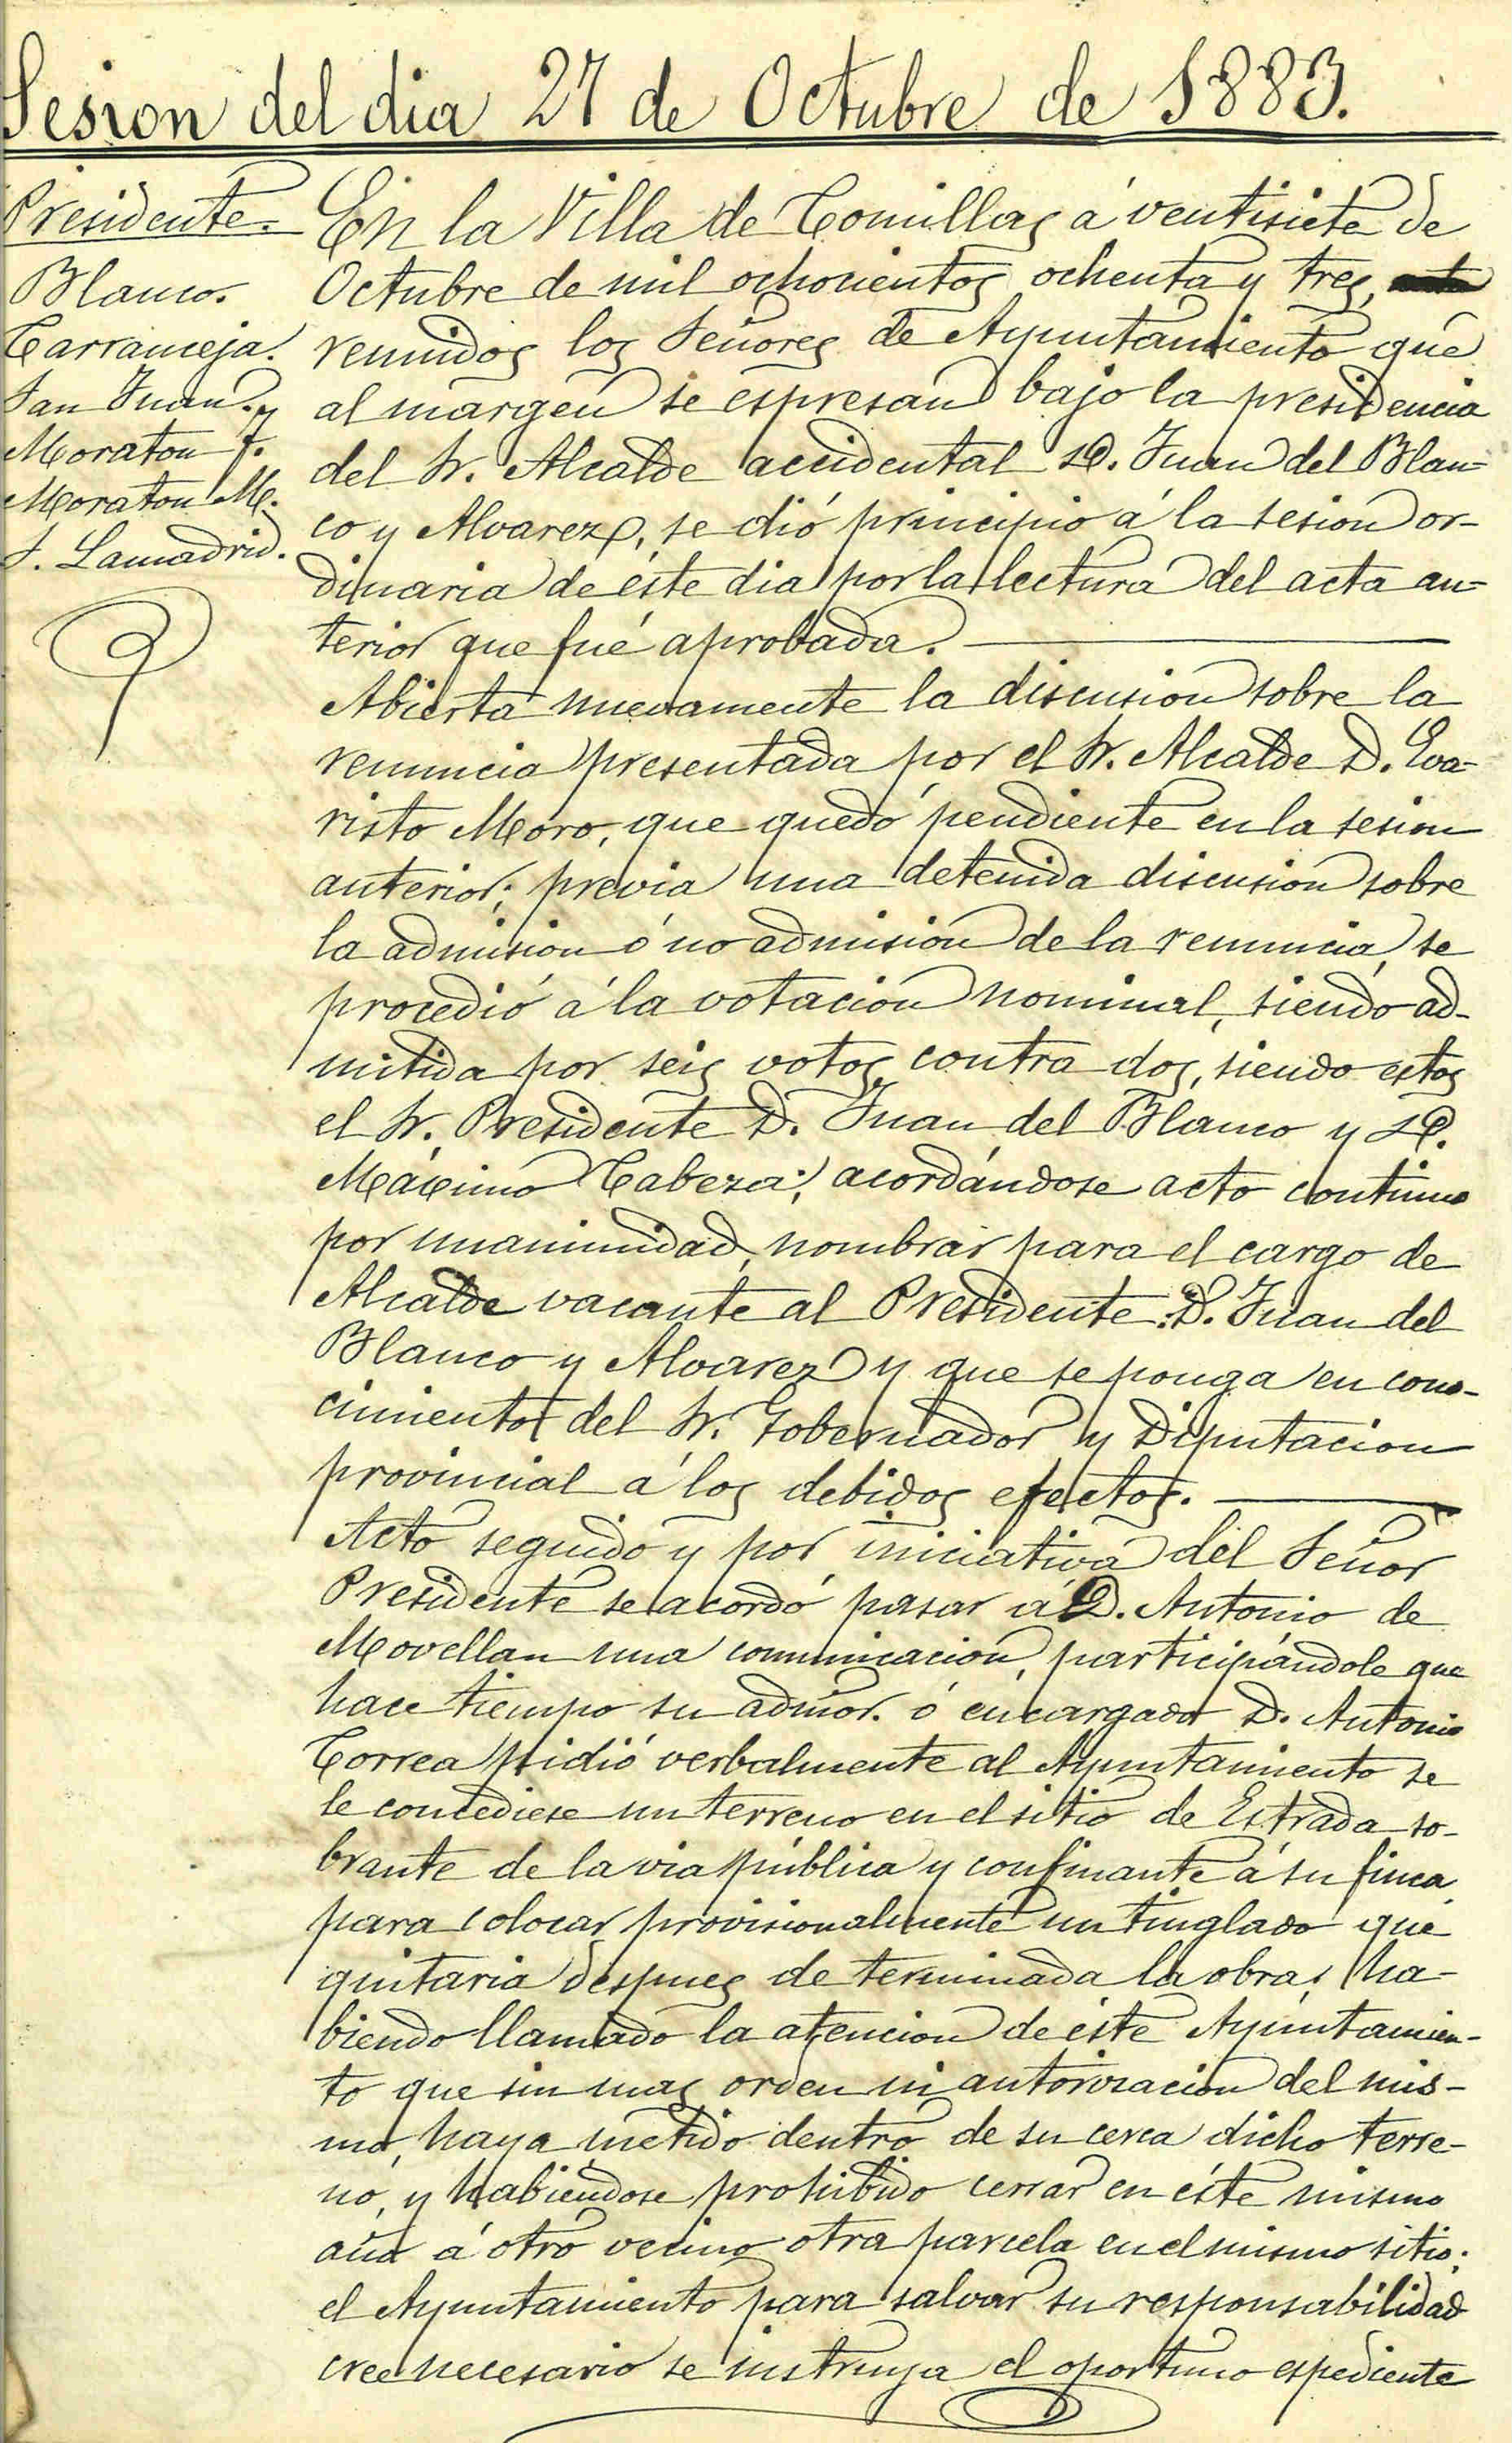 Sesion del dia 27 de Octubre de 1883.
Presidente.
Blanco.
Carranceja.
San Juan. y
Moraton J.
Moraton M.
S. Lamadrid.
En la Villa de Comillas á ventisiete de
Octubre de mil ochocientos ochenta y tres,
reunidos los Señores de Ayuntamiento que
al margen se espresan bajo la presidencia
del Sr. Alcalde accidental D. Juan del Blan-
co y Alvarez, se dió principio á la sesion or-
dinaria de éste dia por la lectura del acta an-
terior que fué aprobada.
Abierta nuevamente la discusion sobre la
renuncia presentada por el Sr. Alcalde D. Eva-
risto Moro, que quedó pendiente en la sesion
anterior; previa una detenida discusion sobre
la admision ó no admision de la renuncia, se
procedió á la votacion nominal, siendo ad-
mitida por seis votos contra dos, siendo estos
el Sr. Presidente D. Juan del Blanco y D.
Máximo Cabeza; acordándose acto continuo
por unanimidad, nombrar para el cargo de
Alcalde vacante al Presidente D. Juan del
Blanco y Alvarez y que se ponga en cono-
cimiento del Sr. Gobernador y Diputacion
provincial á los debidos efectos.
Acto seguido y por iniciativa del Señor
Presidente se acordó pasar á D. Antonio de
Movellan una comunicacion, participándole que
hace tiempo su admor. ó encargado D. Antonio
Correa pidió verbalmente al Ayuntamiento se
le concediese un terreno en el sitio de Estrada so-
brante de la via pública y confinante á su finca,
para colocar provisionalmente un tinglado que
quitaria despues de terminada la obra; ha-
biendo llamado la atencion de éste Ayuntamien-
to que sin mas orden ni autorizacion del mis-
mo, haya metido dentro de su cerca dicho terre-
no, y habiendose prohibido cerrar en éste mismo
año á otro vecino otra parcela en el mismo sitio;
el Ayuntamiento para salvar su responsabilidad
cree necesario se instruya el oportuno espediente